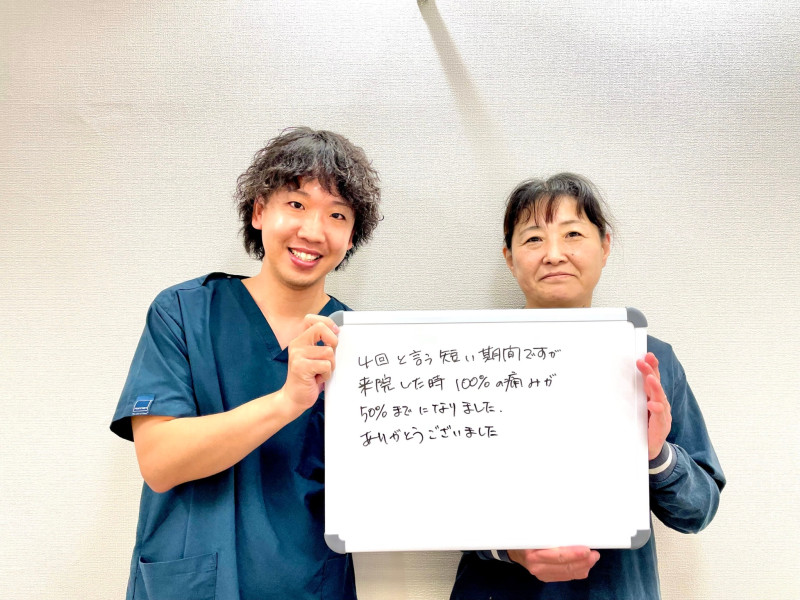 4回と言う短い期間ですが
来院した時100%の痛みが
50%までになりました.
ありがとうございました